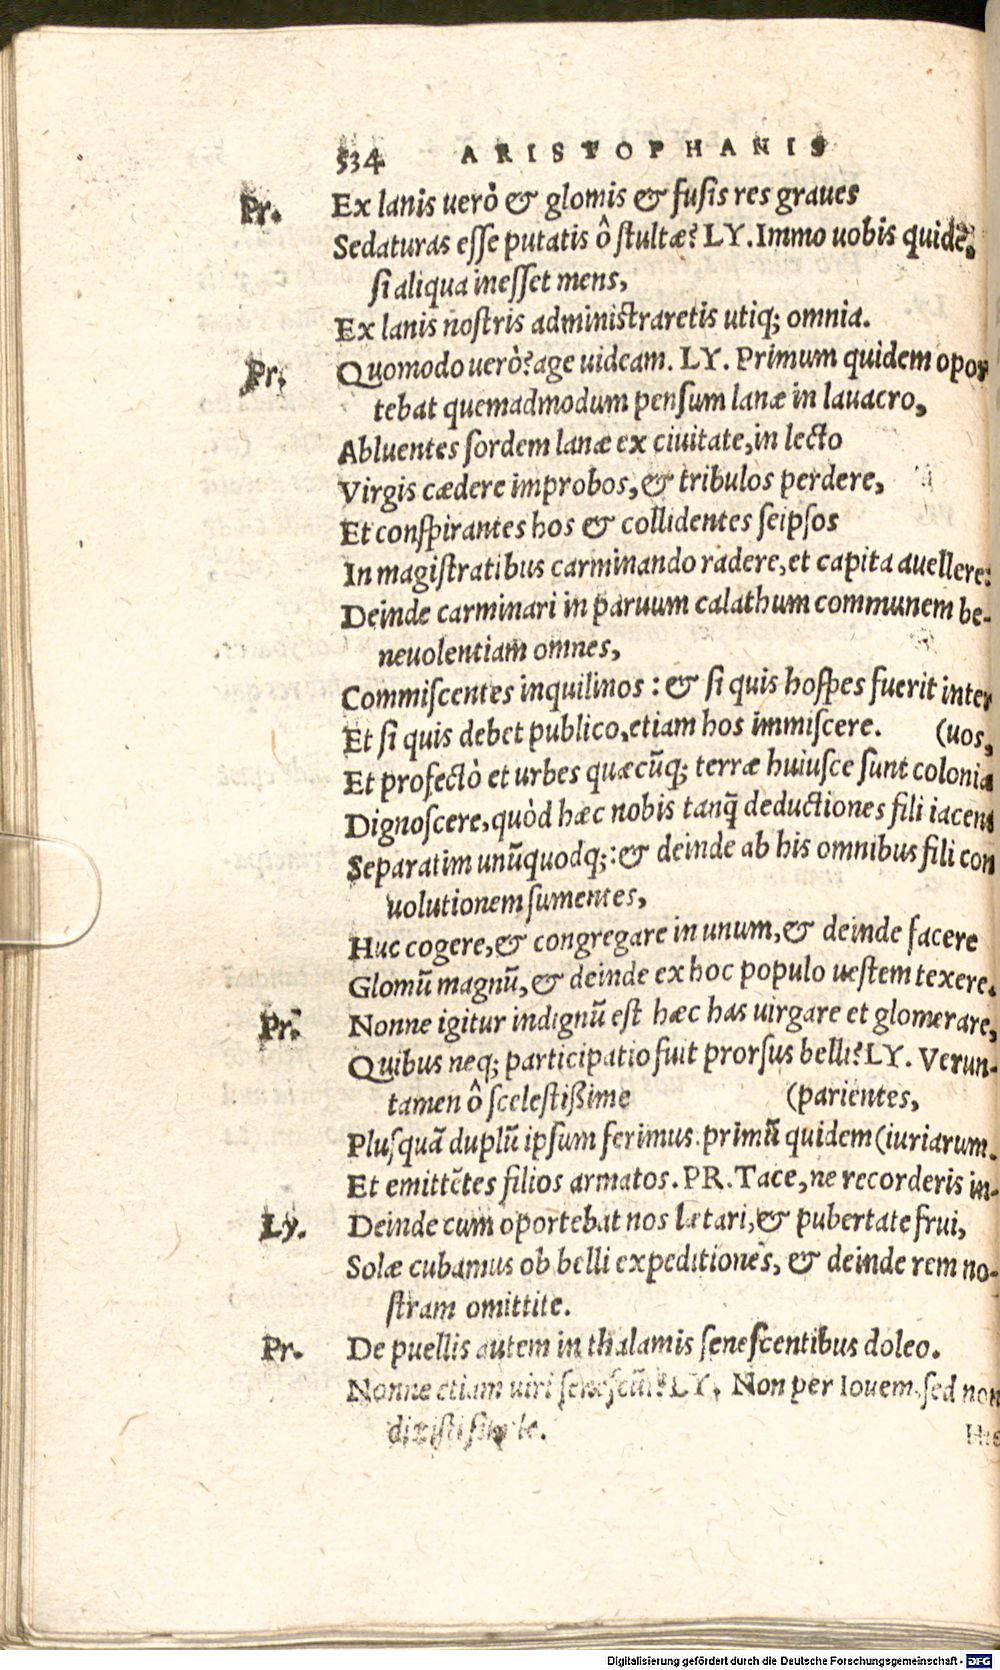 534 ARISTOPHANIS
Pr. Ex lanis uerò & glomis & fusis res graues
Sedaturas esse putatis ô stultæ? LY. Immo uobis quidē,
si aliqua inesset mens,
Ex lanis nostris administraretis utiq; omnia.
Pr. Quomodo uerò? age uideam. LY. Primum quidem opor
tebat quemadmodum pensum lanæ in lauacro,
Abluentes sordem lanæ ex ciuitate, in lecto
Virgis cædere improbos, & tribulos perdere,
Et conspirantes hos & collidentes seipsos
In magistratibus carminando radere, et capita auellere:
Deinde carminari in paruum calathum communem be-
neuolentiam omnes,
Commiscentes inquilinos: & si quis hospes fuerit inter
Et si quis debet publico, etiam hos immiscere. (uos,
Et profectò et urbes quæcūq; terræ huiusce sunt coloniæ
Dignoscere, quòd hæc nobis tanq̃ deductiones fili iacent
Separatim unūquodq;: & deinde ab his omnibus fili con
uolutionem sumentes,
Huc cogere, & congregare in unum, & deinde facere
Glomū magnū, & deinde ex hoc populo uestem texere.
Pr. Nonne igitur indignū est hæc has uirgare et glomerare,
Quibus neq; participatio fuit prorsus belli? LY. Verun-
tamen ô scelestißime (parientes,
Plusquā duplū ipsum ferimus. primū quidem (iuriarum.
Et emittētes filios armatos. PR. Tace, ne recorderis in-
Ly. Deinde cum oportebat nos lætari, & pubertate frui,
Solæ cubamus ob belli expeditiones, & deinde rem no-
stram omittite.
Pr. De puellis autem in thalamis senescentibus doleo.
Nonne etiam uiri senescūt? LY. Non per Iouem, sed non
dixisti simile.
Hic
Digitalisierung gefördert durch die Deutsche Forschungsgemeinschaft - DFG